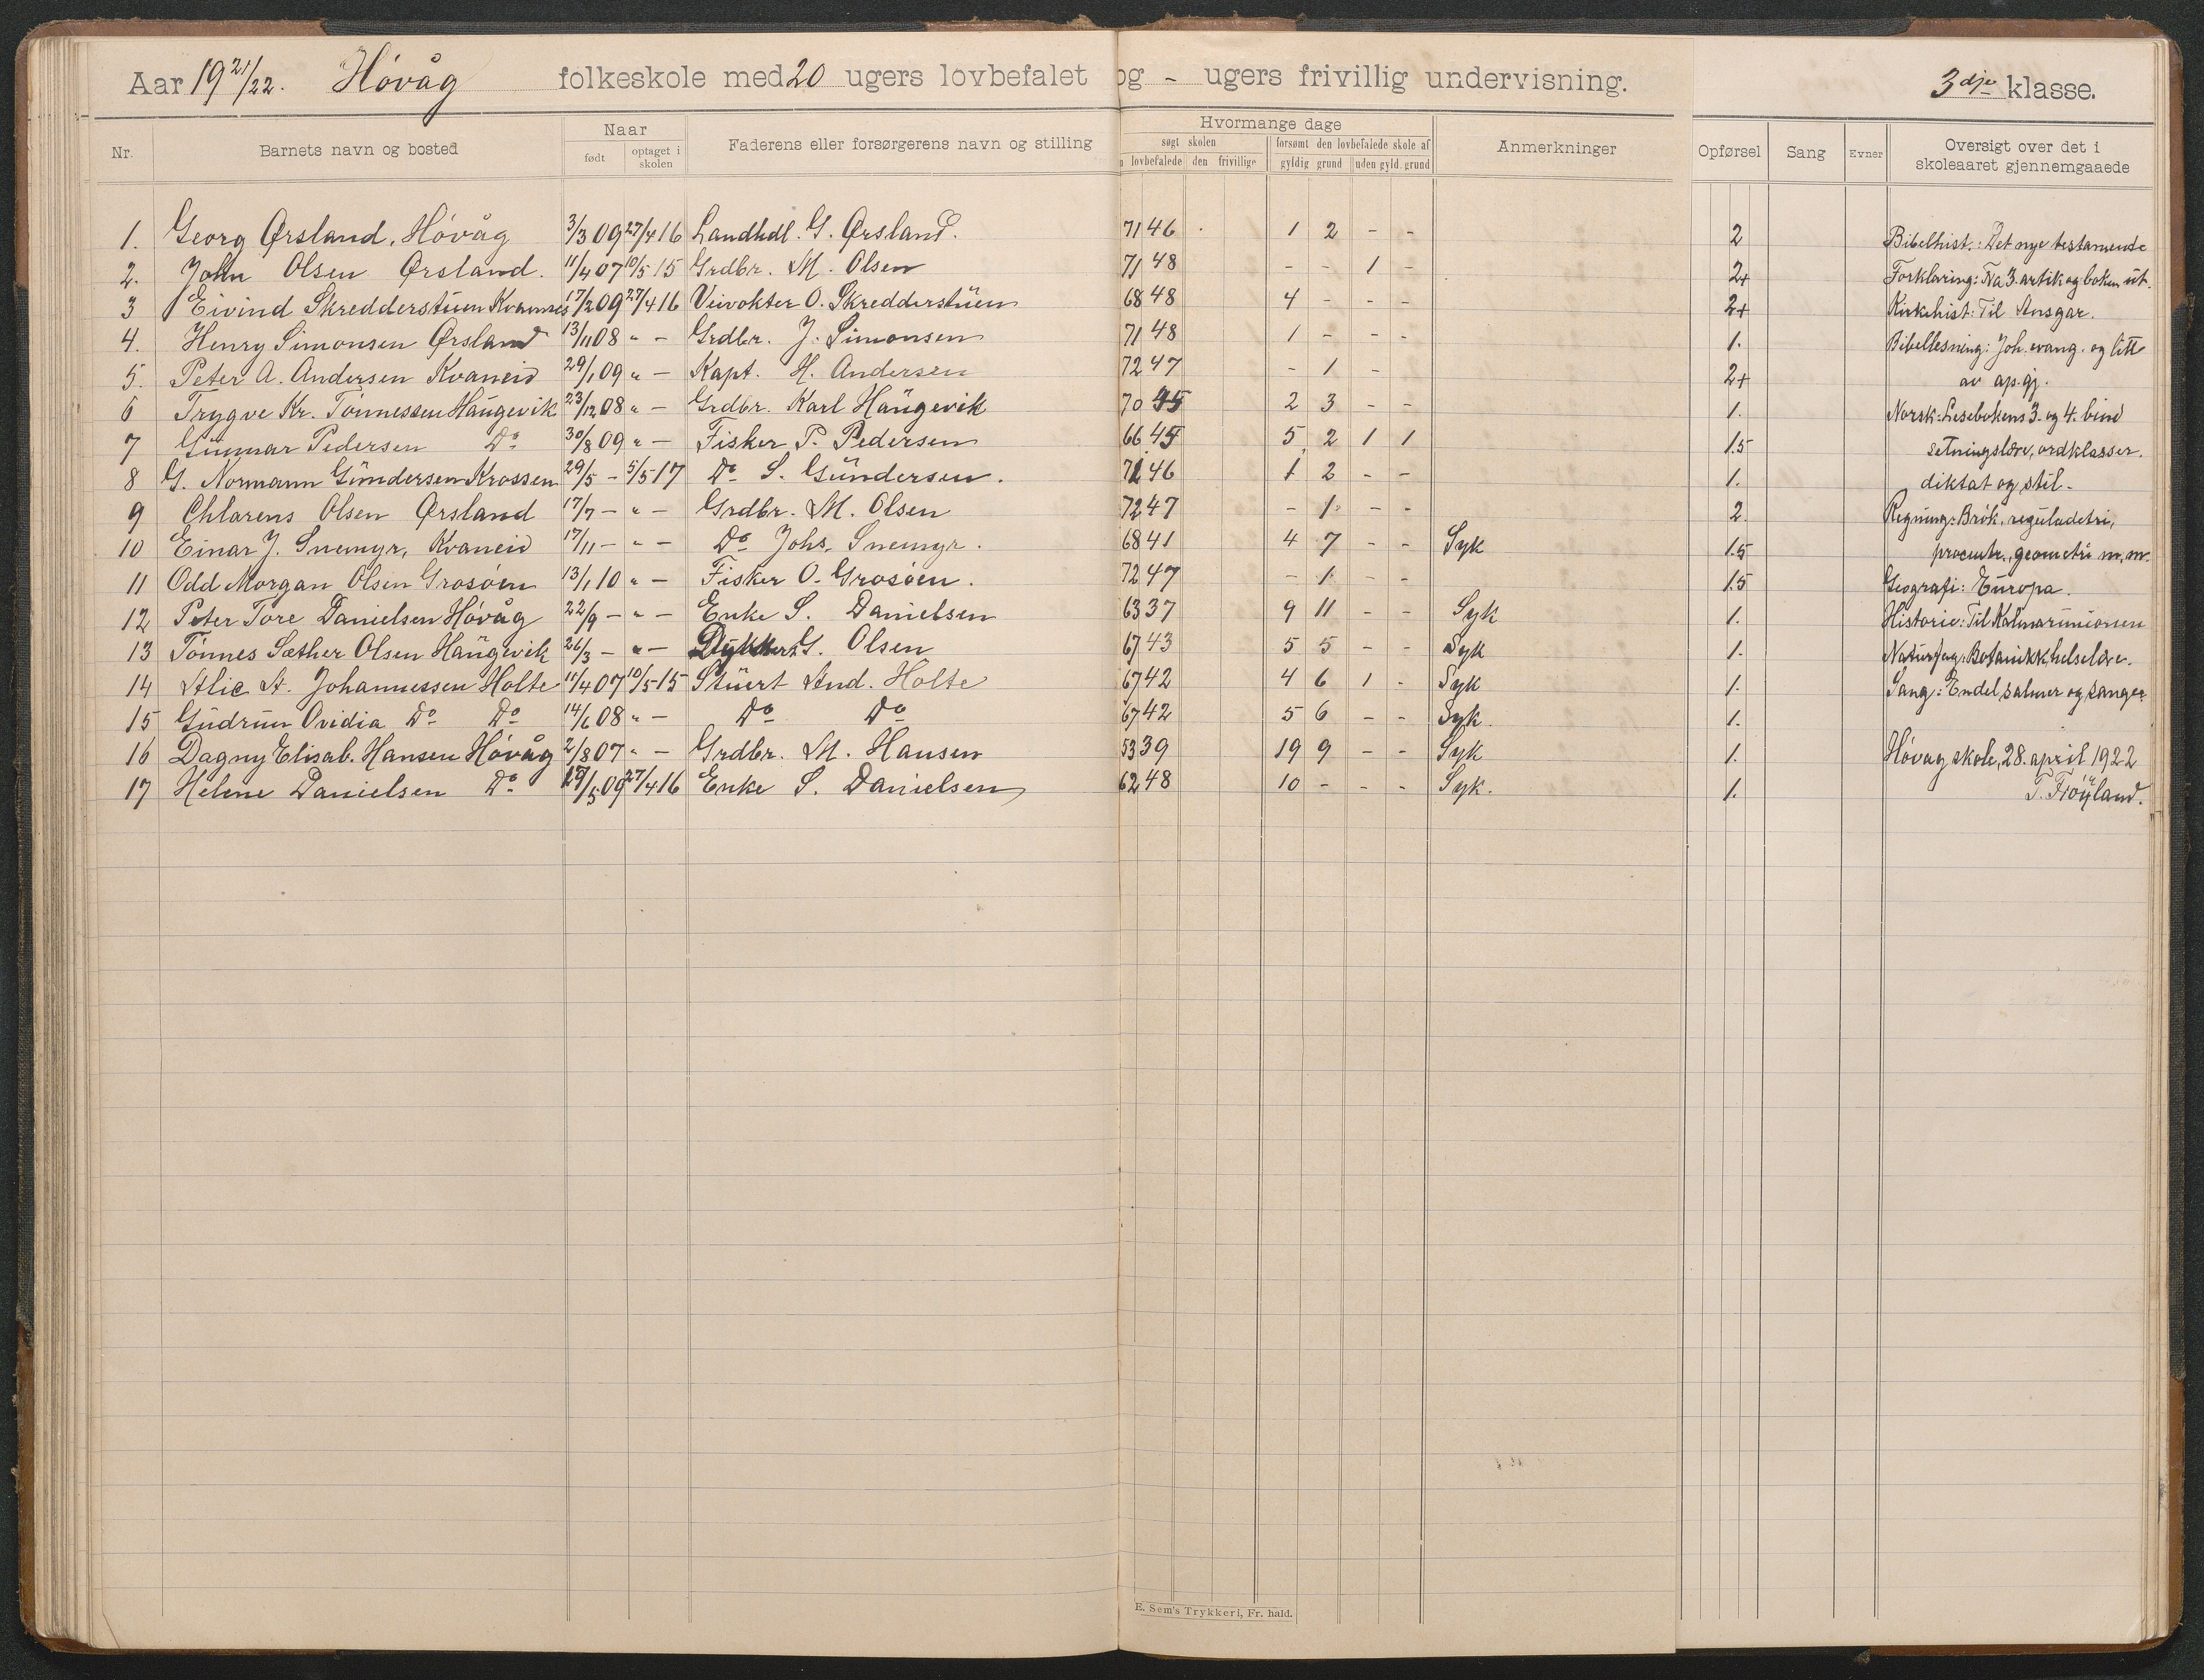 Aar 19 21/22. Høvåg folkeskole med 20 ugers lovbefalet og - ugers frivillig undervisning. 3dje klasse.
Nr. Barnets navn og bosted Naar født optaget i skolen Faderens eller forsørgerens navn og stilling Hvormange dage søgt skolen lovbefalede den frivillige forsømt den lovbefalede skole af gyldig grund uden gyld. grund Anmerkninger Opførsel Sang Evner Oversigt over det i skoleaaret gjennemgaaede
1. Georg Ørsland, Høvåg 3/3 09 27/4 16 Landhdl. G. Ørsland. 71 46 1 2 - - 2 Bibelhist.: Det nye testamente
2. John Olsen Ørsland. 11/4 07 10/5 15 Grdbr. M. Olsen 71 48 - - 1 - 2+ Forklaring: Fra 3. artik og boken ut.
3 Eivind Skredderstuen Kvannes 17/2 09 27/4 16 Veivokter O. Skredderstuen 68 48 4 - - - 2+ Kirkehist: Til Ansgar.
4. Henry Simonsen Ørsland 13/11 08 " - Grdbr. J. Simonsen 71 48 1 - - - 1. Bibellesning: Joh. evang. og litt
5. Peter A. Andersen Kvaneid 29/1 09 " - Kapt. H. Andersen 72 47 - 1 - 2+ av ap.gj.
6 Trygve Kr. Tønnessen Haugevik 23/12 08 " - Grdbr. Karl Haugevik 70 45 2 3 - - 1. Norsk: Lesebokens 3. og 4. bind
7 Gunnar Pedersen Do 30/8 09 " - Fisker P. Pedersen 66 45 5 2 1 1 1.5 setningslære, ordklasser.
8 G. Normann Gundersen Krossen 29/5 - 5/5 17 Do S. Gundersen. 71 46 1 2 - - 1. diktat og stil.
9 Chlarens Olsen Ørsland 17/7 - " - Grdbr. M. Olsen 72 47 - 1 - - 2 Regning: Brøk, reguladetri,
10 Einar J. Snemyr, Kvaneid 17/11 - " - Do Johs. Snemyr. 68 41 4 7 - - Syk 1.5 procentr., geometri m.m.
11 Odd Morgan Olsen Grosøen 13/1 10 " - Fisker O. Grosøen. 72 47 - 1 - - 1.5 Geografi: Europa.
12 Peter Tore Danielsen Høvåg 22/9 - " - Enke S. Danielsen 63 37 9 11 - - Syk 1. Historie: Til Kalmarunionen
13 Tønnes Sæther Olsen Haugevik 26/3 - " - Dykker G. Olsen 67 43 5 5 - - Syk 1. Naturfag: Botanikk, helselære.
14 Alic A. Johannessen Holte 11/4 07 10/5 15 Stuert And. Holte 67 42 4 6 1 - Syk 1. Sang: Endel salmer og sanger
15 Gudrun Ovidia Do Do 14/6 08 " - Do Do 67 42 5 6 - - Syk. 1.
16 Dagny Elisab. Hansen Høvåg 2/8 07 " - Grdbr. M. Hansen 53 39 19 9 - - Syk 1. Høvåg skole, 28. april 1922
17 Helene Danielsen Do /5 09 27/4 16 Enke S. Danielsen 62 48 10 - - - Syk. 1. T. Frøyland.
E. Sem's Trykkeri, Fr. hald.